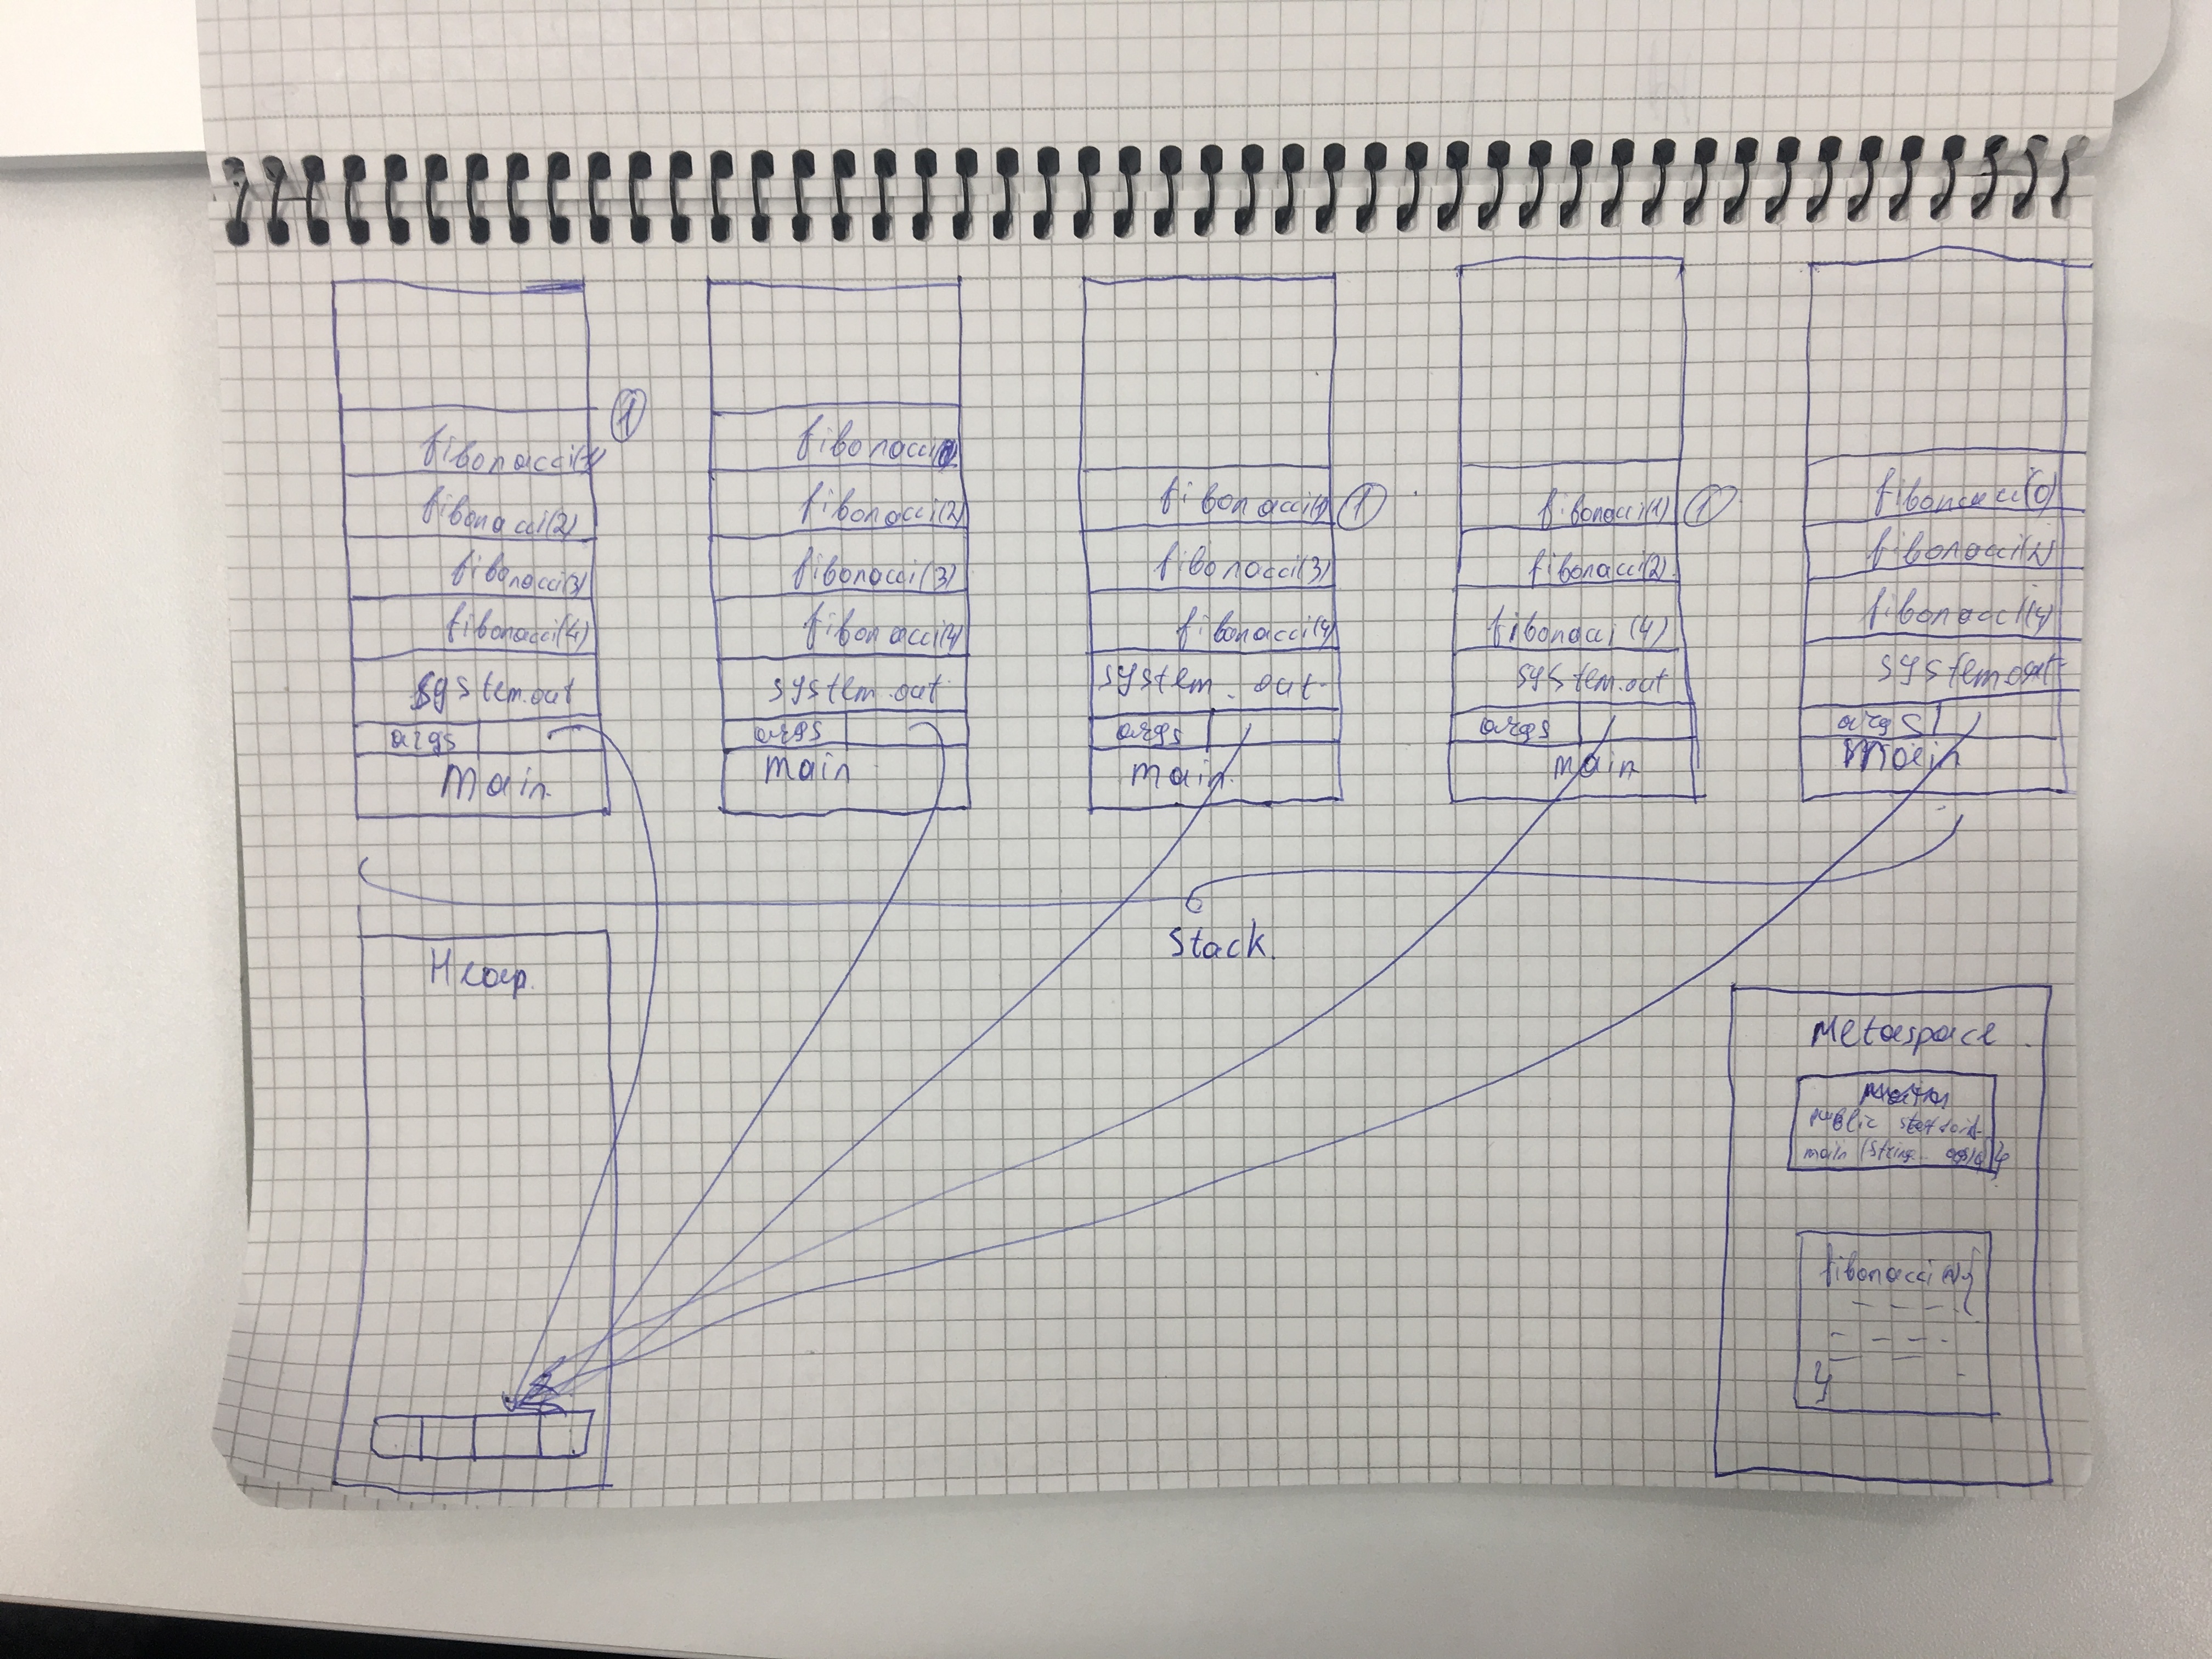 fibonacci(1)
1
fibonacci(2)
fibonacci(3)
fibonacci(4)
System.out
args
Main
fibonacci(0)
fibonacci(2)
fibonacci(3)
fibonacci(4)
system.out
args
main
fibonacci(1)
1
fibonacci(3)
fibonacci(4)
system.out
args
main
fibonacci(1)
1
fibonacci(2)
fibonacci(4)
system.out
args
main
fibonacci(0)
fibonacci(2)
fibonacci(4)
system.out
args
Main
Stack
Heap
Metaspace
public
main (String args) { }
fibonacci(n) {
}